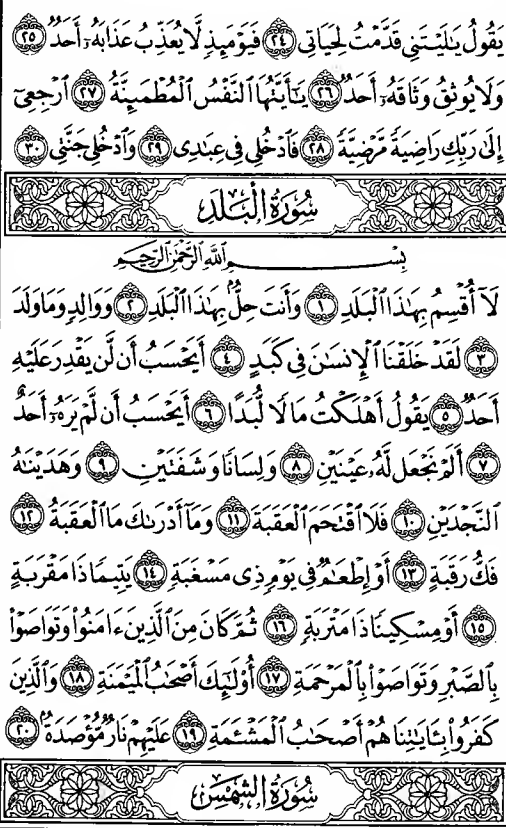 يَقُولُ يَٰلَيۡتَنِي قَدَّمۡتُ لِحَيَاتِي ٢٤ فَيَوۡمَئِذٖ لَّا يُعَذِّبُ عَذَابَهُۥٓ أَحَدٞ ٢٥
وَلَا يُوثِقُ وَثَاقَهُۥٓ أَحَدٞ ٢٦ يَٰٓأَيَّتُهَا ٱلنَّفۡسُ ٱلۡمُطۡمَئِنَّةُ ٢٧ ٱرۡجِعِيٓ
إِلَىٰ رَبِّكِ رَاضِيَةٗ مَّرۡضِيَّةٗ ٢٨ فَٱدۡخُلِي فِي عِبَٰدِي ٢٩ وَٱدۡخُلِي جَنَّتِي ٣٠
سُورَةُ الْبَلَدِ
بِسۡمِ ٱللَّهِ ٱلرَّحۡمَٰنِ ٱلرَّحِيمِ
لَآ أُقۡسِمُ بِهَٰذَا ٱلۡبَلَدِ ١ وَأَنتَ حِلُّۢ بِهَٰذَا ٱلۡبَلَدِ ٢ وَوَالِدٖ وَمَا وَلَدَ
٣ لَقَدۡ خَلَقۡنَا ٱلۡإِنسَٰنَ فِي كَبَدٍ ٤ أَيَحۡسَبُ أَن لَّن يَقۡدِرَ عَلَيۡهِ
أَحَدٞ ٥ يَقُولُ أَهۡلَكۡتُ مَالٗا لُّبَدًا ٦ أَيَحۡسَبُ أَن لَّمۡ يَرَهُۥٓ أَحَدٌ
٧ أَلَمۡ نَجۡعَل لَّهُۥ عَيۡنَيۡنِ ٨ وَلِسَانٗا وَشَفَتَيۡنِ ٩ وَهَدَيۡنَٰهُ
ٱلنَّجۡدَيۡنِ ١٠ فَلَا ٱقۡتَحَمَ ٱلۡعَقَبَةَ ١١ وَمَآ أَدۡرَىٰكَ مَا ٱلۡعَقَبَةُ ١٢
فَكُّ رَقَبَةٍ ١٣ أَوۡ إِطۡعَٰمٞ فِي يَوۡمٖ ذِي مَسۡغَبَةٖ ١٤ يَتِيمٗا ذَا مَقۡرَبَةٍ
١٥ أَوۡ مِسۡكِينٗا ذَا مَتۡرَبَةٖ ١٦ ثُمَّ كَانَ مِنَ ٱلَّذِينَ ءَامَنُواْ وَتَوَاصَوۡاْ
بِٱلصَّبۡرِ وَتَوَاصَوۡاْ بِٱلۡمَرۡحَمَةِ ١٧ أُوْلَٰٓئِكَ أَصۡحَٰبُ ٱلۡمَيۡمَنَةِ ١٨ وَٱلَّذِينَ
كَفَرُواْ بِـَٔايَٰتِنَا هُمۡ أَصۡحَٰبُ ٱلۡمَشۡـَٔمَةِ ١٩ عَلَيۡهِمۡ نَارٞ مُّؤۡصَدَةُۢ ٢٠
سُورَةُ الشَّمْسِ